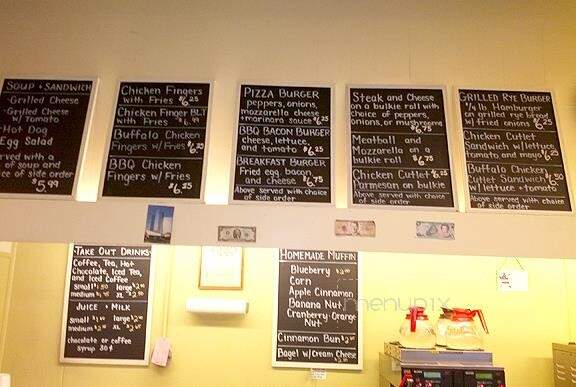 SOUP + SANDWICH
-Grilled Cheese
-Grilled Cheese
w/ Tomato
-Hot Dog
Egg Salad
rved with a
of soup and
ice of side order
$5.99
Chicken Fingers
with Fries $6.25
Chicken Finger BLT
with Fries
Buffalo Chicken
Fingers w/Fries
BBQ Chicken
Fingers w/Fries
$6.55
PIZZA BURGER
peppers, onions,
mozzarella cheese
+marinara sauce $6.25
BBQ BACON BURGER
cheese, lettuce,
and tomato $6.25
BREAKFAST BURGER
Fried egg, bacon
and cheese $6.75
Above served with choice
of side order
Steak and Cheese
on a bulkie roll with
choice of peppers,
onions, or mushrooms
$6.75
Meatball and
Mozzarella on a
bulkie roll $6.75
Chicken Cutlet $6.25
Parmesan on bulkie
GRILLED RYE BURGER
1/4 lb. Hamburger
on grilled rye bread
w/ fried onions $6.25
Chicken Cutlet
Sandwich w/lettuce
tomato and mayo $6.25
Buffalo Chicken
Cutlet Sandwich $6.50
w/ lettuce + tomato
Above served with choice
of side order
TAKE OUT DRINKS
Coffee, Tea, Hot
Chocolate, Iced Tea,
and Iced Coffee
small large
medium XL
JUICE + MILK
small large
medium XL
chocolate or coffee
syrup 30¢
HOMEMADE MUFFIN
Blueberry
Corn
Apple Cinnamon
Banana Nut
Cranberry-Orange
Nut
Cinnamon Bun
Bagel w/Cream Cheese
menupix